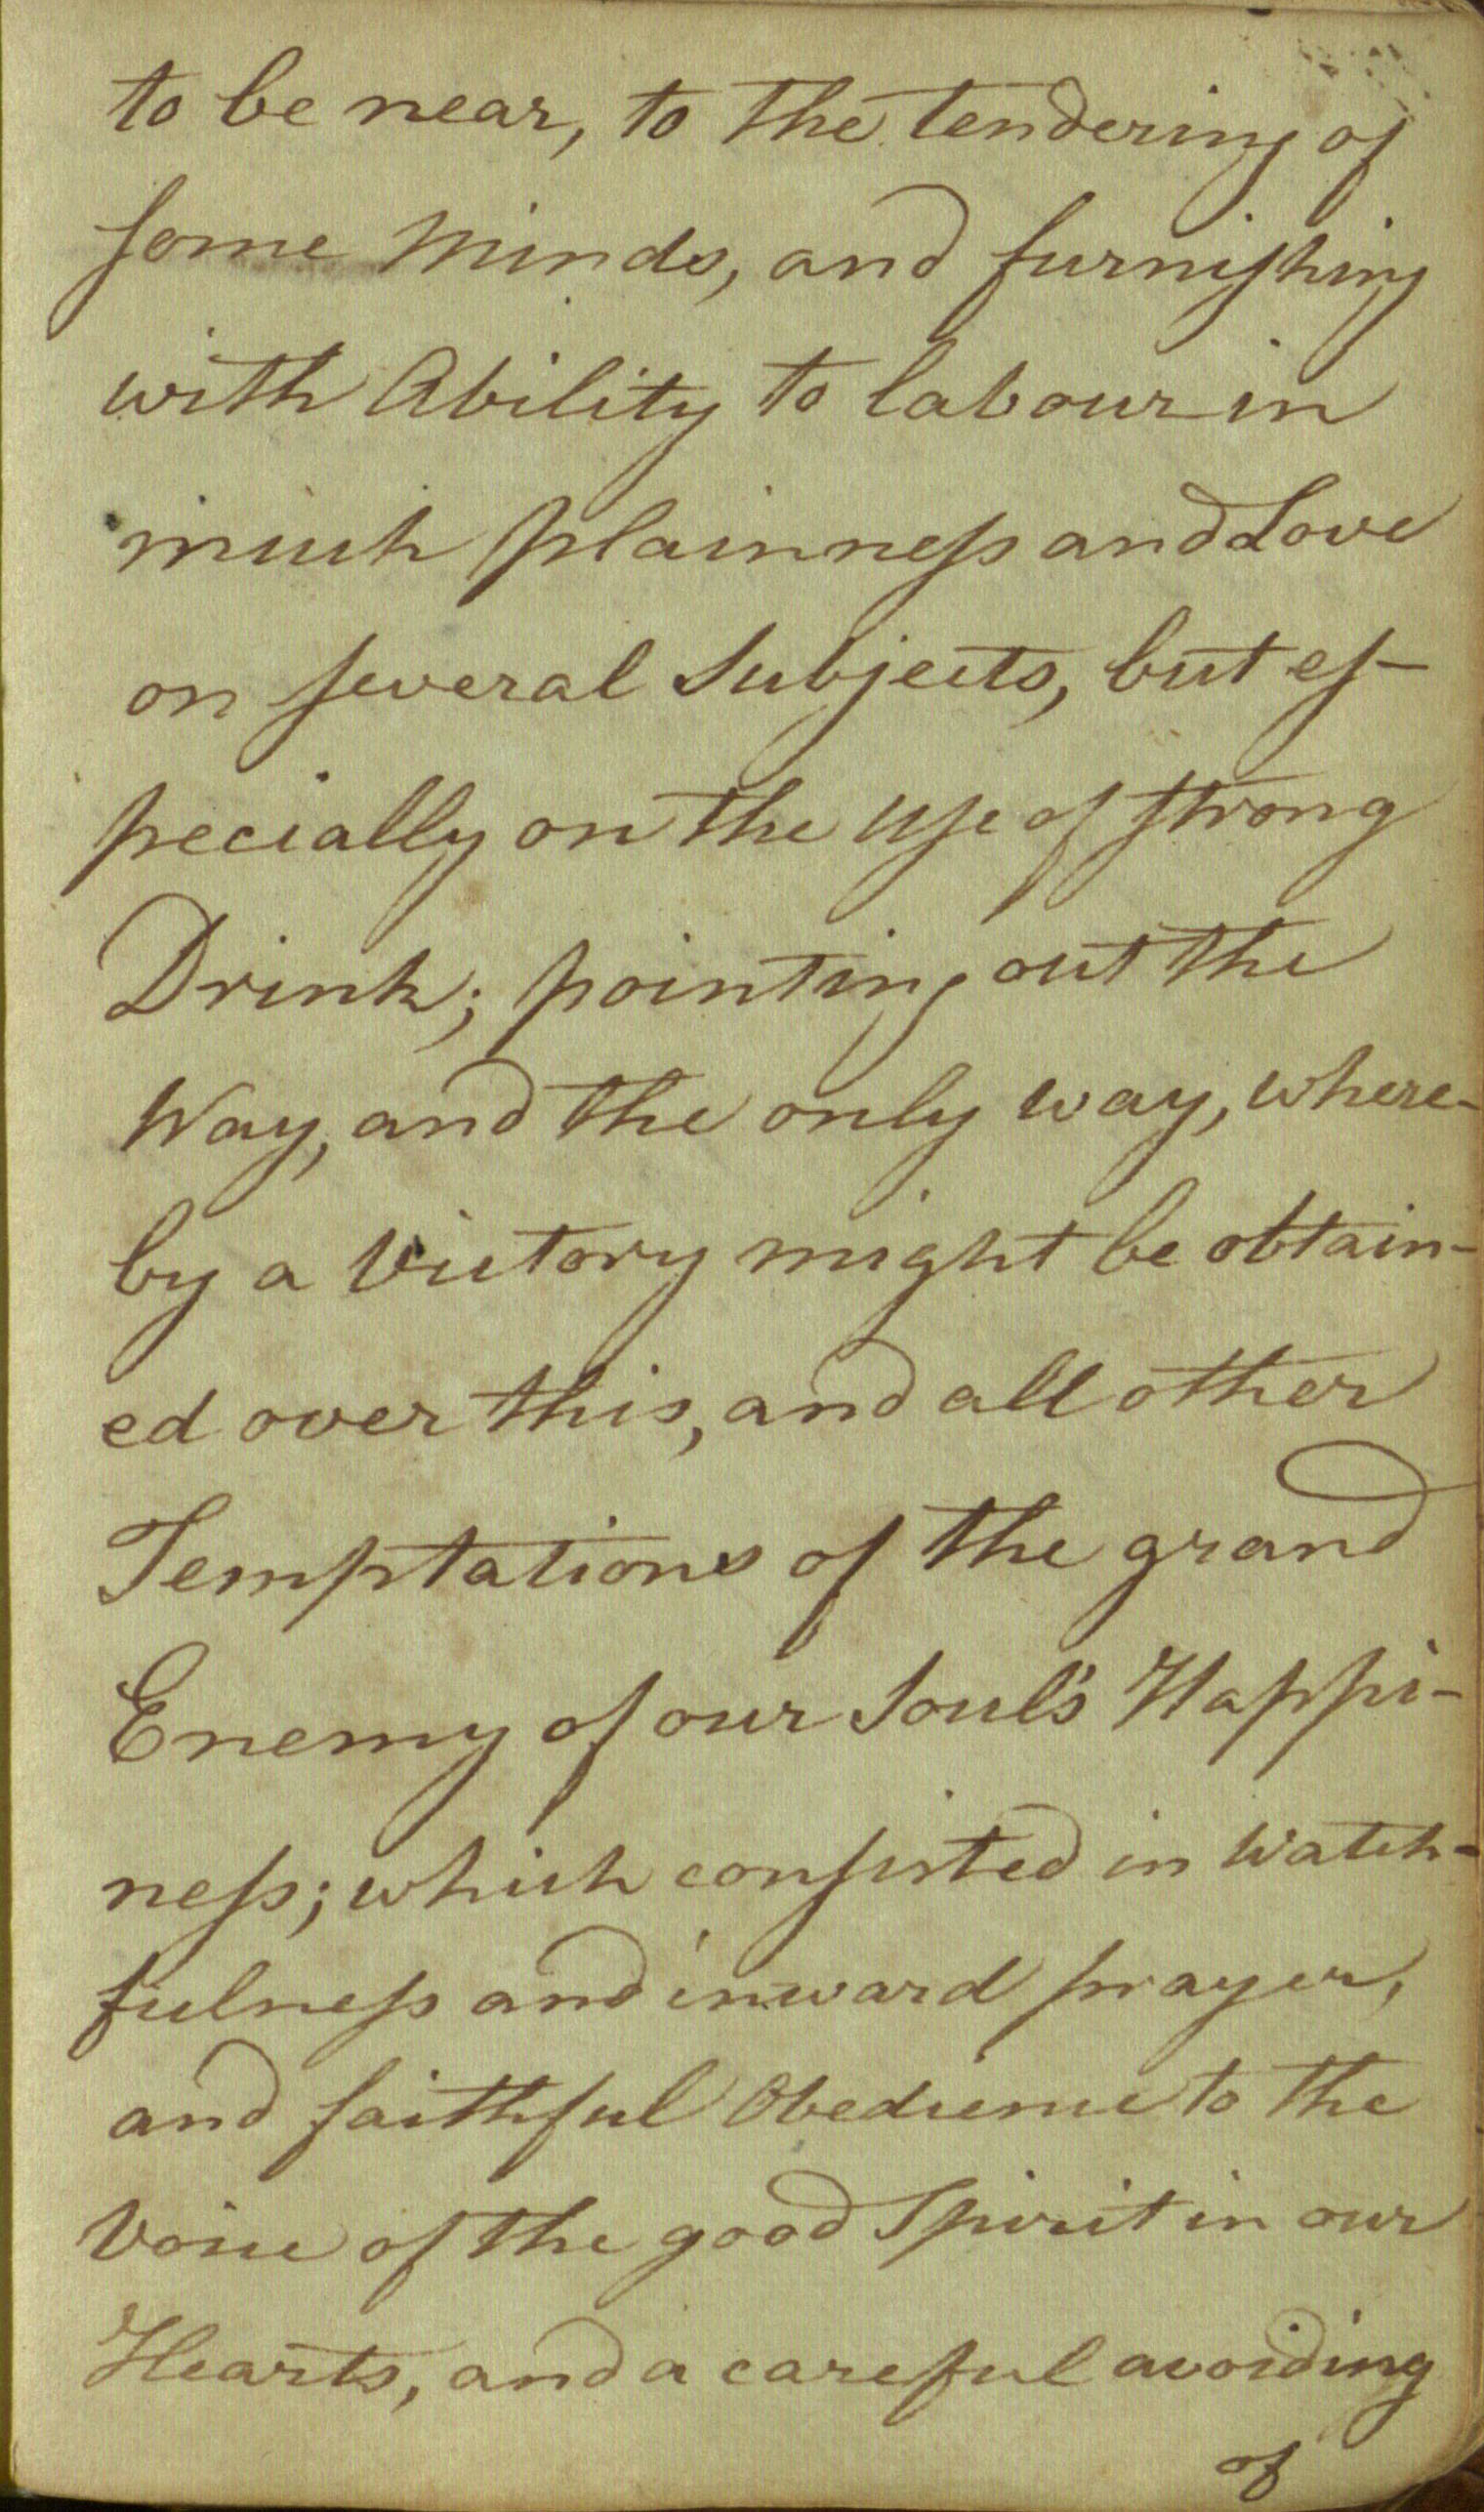 to be near, to the tendering of
some Minds, and furnishing
with Ability to labour in
much plainness and Love
on several Subjects, but es-
pecially on the Use of strong
Drink; pointing out the
Way, and the only way, where-
by a Victory might be obtain-
ed over this, and all other
Temptations of the grand
Enemy of our Soul's Happi-
ness; which consisted in Watch-
fulness and inward prayer,
and faithful Obedience to the
Voice of the good Spirit in our
Hearts, and a careful avoiding
of